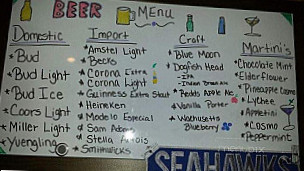 BEER MENU
Domestic
* Bud
* Bud Light
* Bud Ice
* Coors Light
* Miller Light
* Yuengling
Import
* Amstel Light
* Becks
* Corona Extra
* Corona Light
* Guinness Extra Stout
* Heineken
* Modelo Especial
* Sam Adams
* Stella Artois
* Smithwicks
Craft
* Blue Moon
* Dogfish Head
- IPA
- Indian Brown Ale
* Redds Apple Ale
* Vanilla Porter
* Wachusetts
Blueberry
Martini's
* Chocolate Mint
* Elderflower
* Pineapple Cosmo
* Lychee
* Appletini
* Cosmo
* Peppermint
SEAHAWKS